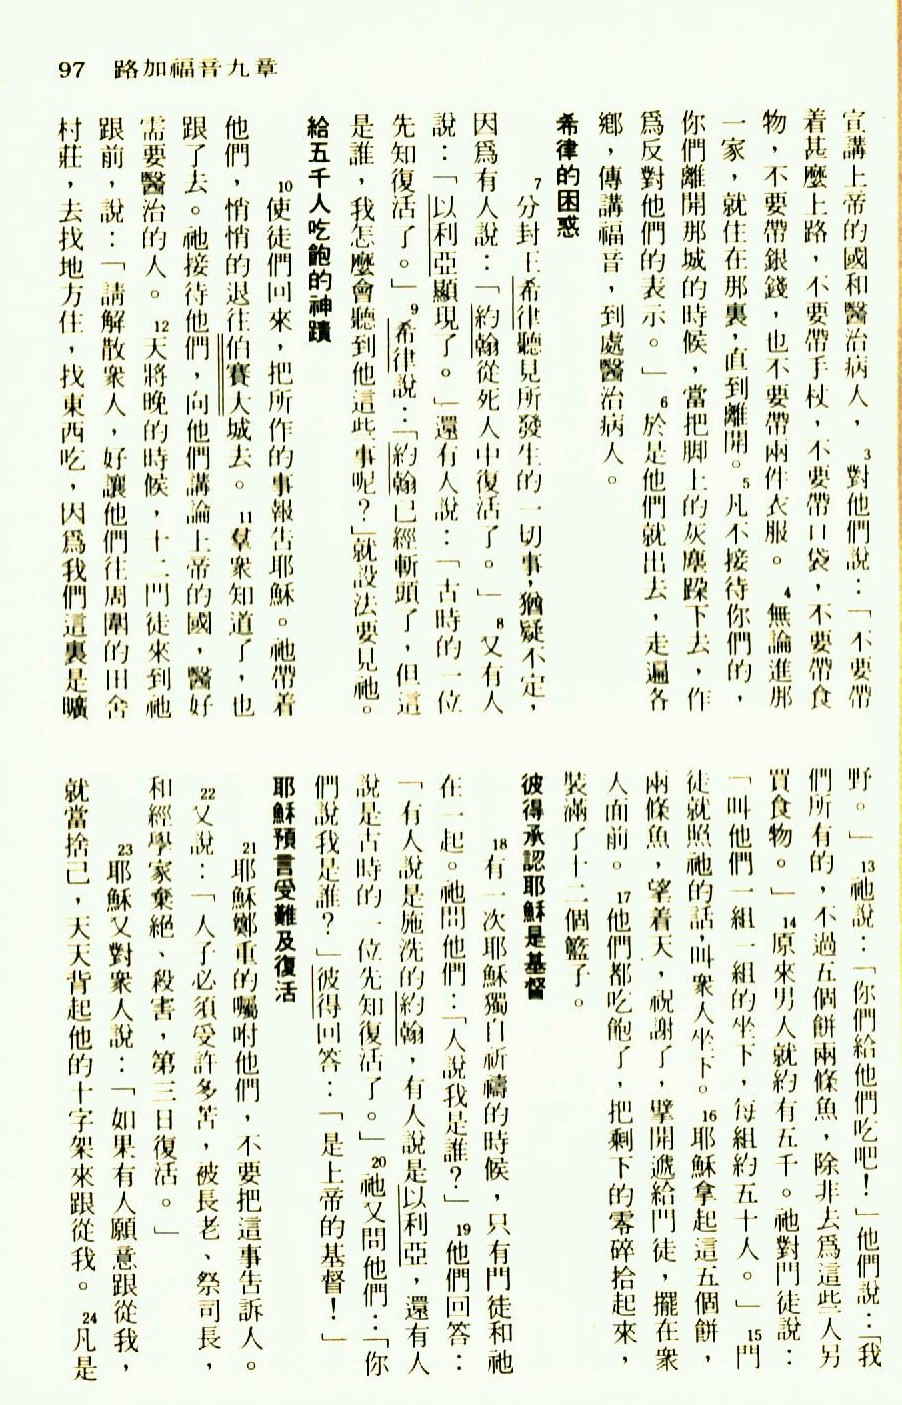 97 路加福音九章
宣講上帝的國和醫治病人，3對他們說：「不要帶
着甚麼上路，不要帶手杖，不要帶口袋，不要帶食
物，不要帶銀錢，也不要帶兩件衣服。4無論進那
一家，就住在那裏，直到離開。5凡不接待你們的，
你們離開那城的時候，當把脚上的灰塵跺下去，作
爲反對他們的表示。」6於是他們就出去，走遍各
鄉，傳講福音，到處醫治病人。
希律的困惑
7分封王希律聽見所發生的一切事，猶疑不定，
因爲有人說：「約翰從死人中復活了。」8又有人
說：「以利亞顯現了。」還有人說：「古時的一位
先知復活了。」9希律說：「約翰已經斬頭了，但這
是誰，我怎麼會聽到他這些事呢？」就設法要見祂。
給五千人吃飽的神蹟
10使徒們回來，把所作的事報告耶穌。祂帶着
他們，悄悄的退往伯賽大城去。11羣衆知道了，也
跟了去。祂接待他們，向他們講論上帝的國，醫好
需要醫治的人。12天將晚的時候，十二門徒來到祂
跟前，說：「請解散衆人，好讓他們往周圍的田舍
村莊，去找地方住，找東西吃，因爲我們這裏是曠
野。」13祂說：「你們給他們吃吧！」他們說：「我
們所有的，不過五個餅兩條魚，除非去爲這些人另
買食物。」14原來男人就約有五千。祂對門徒說：
「叫他們一組一組的坐下，每組約五十人。」15門
徒就照祂的話，叫衆人坐下。16耶穌拿起這五個餅，
兩條魚，望着天，祝謝了，擘開遞給門徒，擺在衆
人面前。17他們都吃飽了，把剩下的零碎拾起來，
裝滿了十二個籃子。
彼得承認耶穌是基督
18有一次耶穌獨自祈禱的時候，只有門徒和祂
在一起。祂問他們：「人說我是誰？」19他們回答：
「有人說是施洗的約翰，有人說是以利亞，還有人
說是古時的一位先知復活了。」20祂又問他們：「你
們說我是誰？」彼得回答：「是上帝的基督！」
耶穌預言受難及復活
21耶穌鄭重的囑咐他們，不要把這事告訴人。
22又說：「人子必須受許多苦，被長老、祭司長，
和經學家棄絕、殺害，第三日復活。」
23耶穌又對衆人說：「如果有人願意跟從我，
就當捨己，天天背起他的十字架來跟從我。24凡是